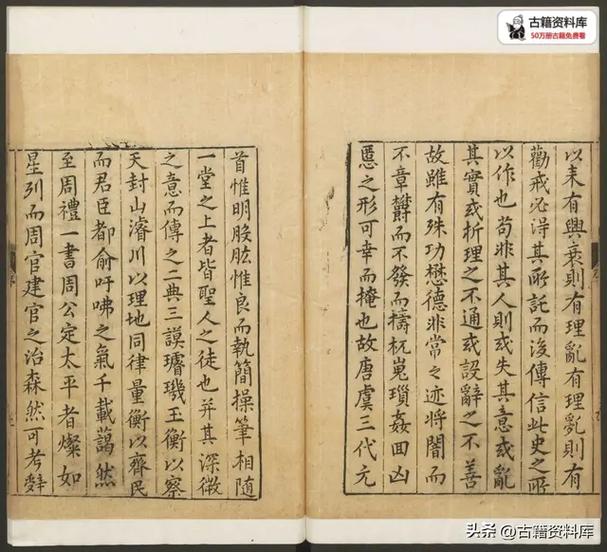 古籍资料库
50万册古籍免费看
以來有興衰則有理亂有理亂則有
勸戒必得其所託而後傳信此史之所
以作也苟非其人則或失其意或亂
其實或析理之不通或設辭之不善
故雖有殊功懋德非常之迹將闇而
不章欝而不發而檮杌嵬瑣姦回凶
慝之形可幸而掩也故唐虞三代元
首惟明股肱惟良而執簡操筆相随
一堂之上者皆聖人之徒也并其深微
之意而傳之二典三謨璿璣玉衡以察
天封山濬川以理地同律量衡以齊民
而君臣都俞吁咈之氣千載藹然
至周禮一書周公定太平者燦如
星列而周官建官之治森然可考辭
头条 @古籍资料库